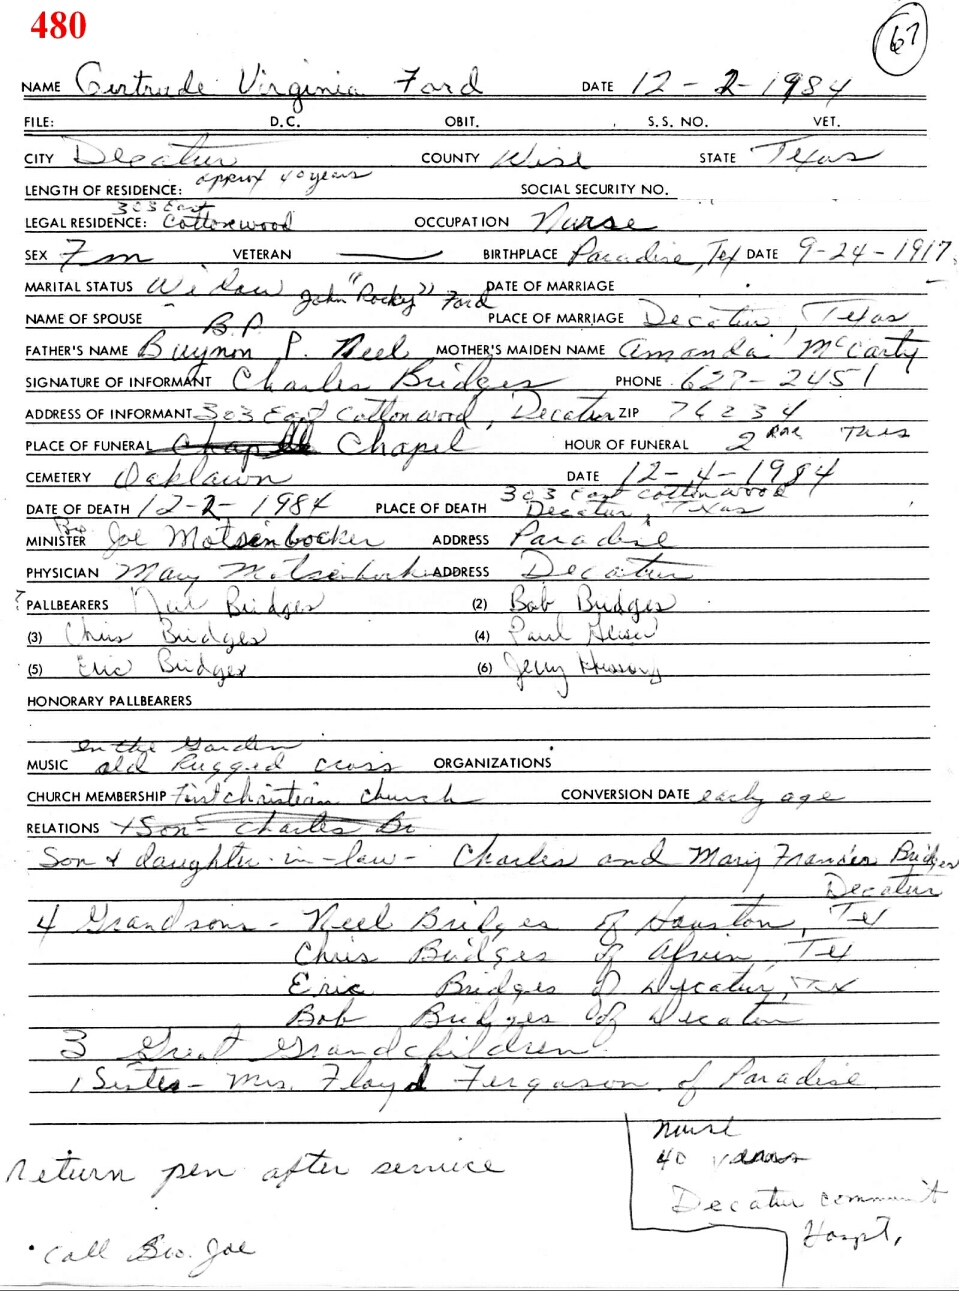 480
67
NAME Gertrude Virginia Ford DATE 12-2-1984
FILE: D.C. OBIT. S.S. NO. VET.
CITY Decatur COUNTY Wise STATE Texas
LENGTH OF RESIDENCE: approx 40 years SOCIAL SECURITY NO.
303 East
LEGAL RESIDENCE: Cottonwood OCCUPATION Nurse
SEX Fm VETERAN — BIRTHPLACE Paradise, Tex DATE 9-24-1917
MARITAL STATUS Widow DATE OF MARRIAGE
John "Rocky" Ford
NAME OF SPOUSE PLACE OF MARRIAGE Decatur, Texas
B.P.
FATHER'S NAME P. Neel MOTHER'S MAIDEN NAME Amanda McCarty
SIGNATURE OF INFORMANT Charles Bridges PHONE 627-2451
ADDRESS OF INFORMANT 303 East Cottonwood, Decatur ZIP 76234
PLACE OF FUNERAL Chapel Chapel HOUR OF FUNERAL 2 PM Tues
CEMETERY Oaklawn DATE 12-4-1984
303 East Cottonwood
DATE OF DEATH 12-2-1984 PLACE OF DEATH Decatur, Texas
Bro
MINISTER Joe Motsenbocker ADDRESS Paradise
PHYSICIAN Mary Motsenbocker ADDRESS Decatur
? PALLBEARERS Neel Bridges (2) Bob Bridges
(3) Chris Bridges (4) Paul
(5) Eric Bridges (6) Jerry Hussong
HONORARY PALLBEARERS
In the Garden
MUSIC Old Rugged Cross ORGANIZATIONS
CHURCH MEMBERSHIP First Christian Church CONVERSION DATE early age
RELATIONS + Son - Charles Br
Son & daughter-in-law - Charles and Mary Frances Bridges
Decatur
4 Grandsons - Neel Bridges of Houston, Tex
Chris Bridges of Alvin, Tex
Eric Bridges of Decatur, Tex
Bob Bridges of Decatur
3 Great Grandchildren
1 Sister - Mrs. Floyd Ferguson of Paradise
Nurse
40 years
Return pen after service
Decatur Communit
Hospt,
• Call Bro. Joe